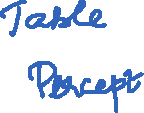 Table
Percept